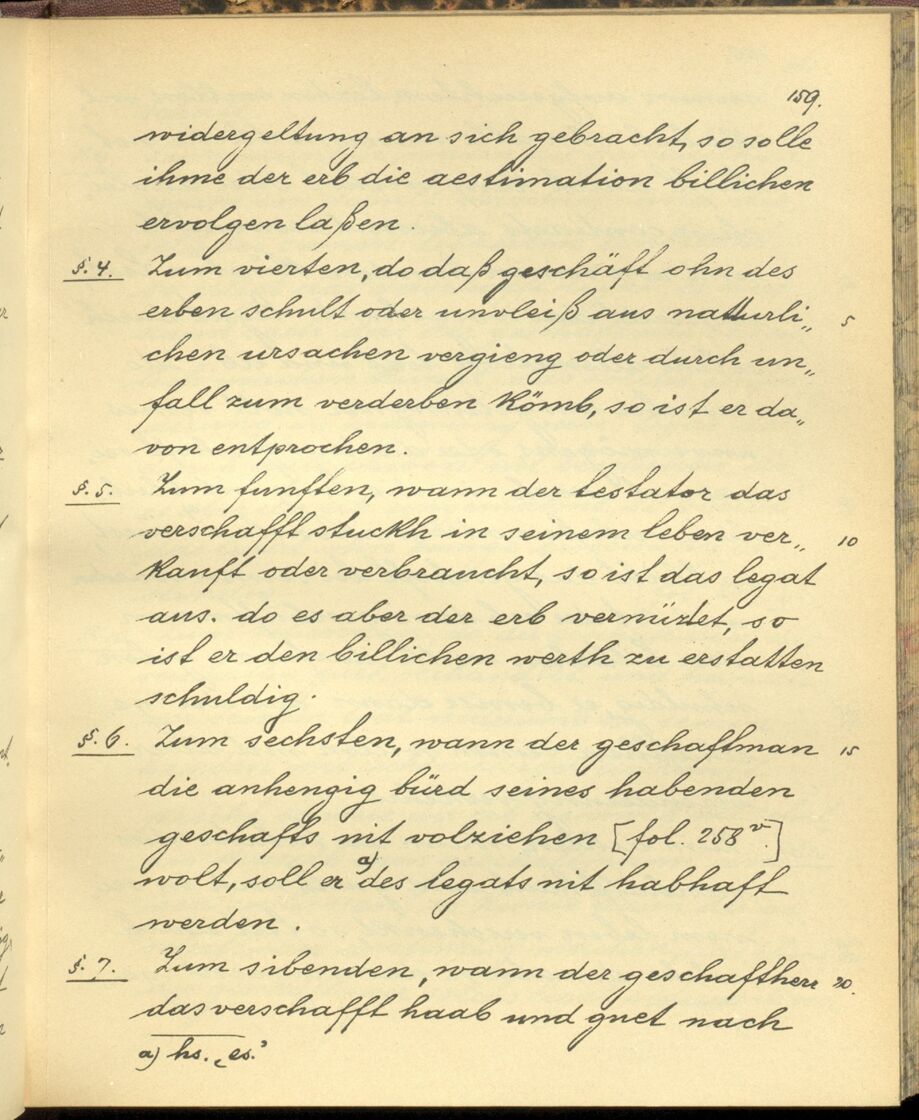 159.
widergeltung an sich gebracht, so solle
ihme der erb die aestimation billichen
ervolgen laßen.
§. 4. Zum vierten, do daß geschäft ohn des
erben schult oder unvleiß aus natturli„ 5
chen ursachen vergieng oder durch un„
fall zum verderben kömb, so ist er da„
von entprochen.
§. 5. Zum funften, wann der testator das
verschafft stuckh in seinem leben ver„ 10
kauft oder verbraucht, so ist das legat
aus. do es aber der erb vernüzet, so
ist er den billichen werth zu erstatten
schuldig.
§. 6. Zum sechsten, wann der geschaftman 15
die anhengig bürd seines habenden
geschafts nit volziehen [fol. 258v.]
wolt, soll er a) des legats nit habhaft
werden.
§. 7. Zum sibenden, wann der geschaftherr 20.
das verschafft haab und guet nach
a) hs. ‚es.‘